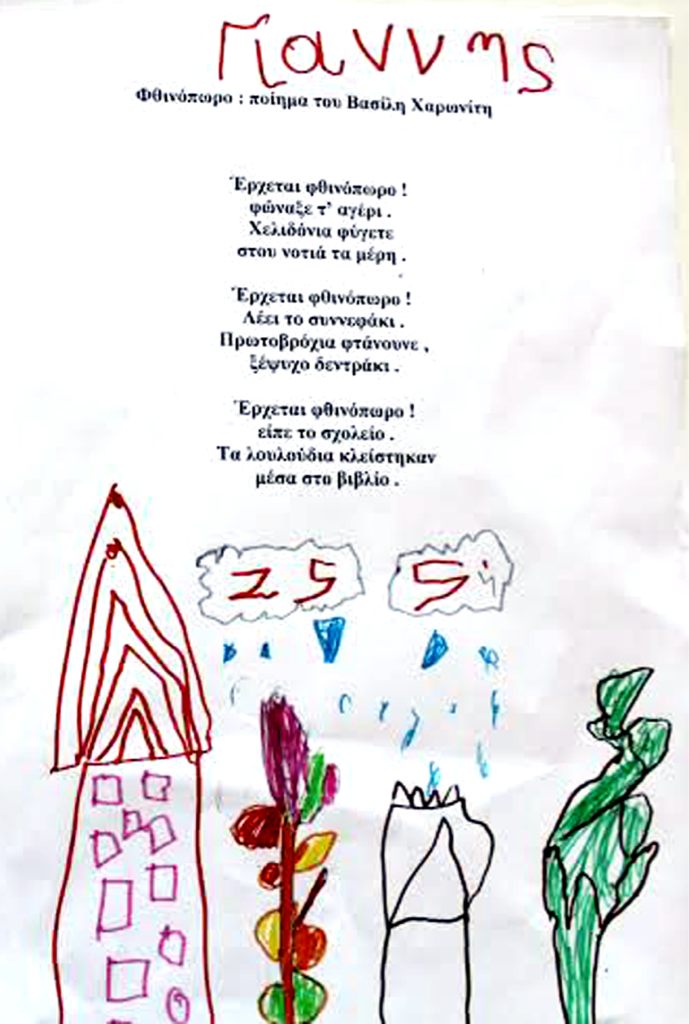 Γιαννης
Φθινόπωρο : ποίημα του Βασίλη Χαρωνίτη
Έρχεται φθινόπωρο !
φώναξε τ' αγέρι .
Χελιδόνια φύγετε
στου νοτιά τα μέρη .
Έρχεται φθινόπωρο !
Λέει το συννεφάκι .
Πρωτοβρόχια φτάνουνε ,
ξέψυχο δεντράκι .
Έρχεται φθινόπωρο !
είπε το σχολείο .
Τα λουλούδια κλείστηκαν
μέσα στο βιβλίο .
25 5